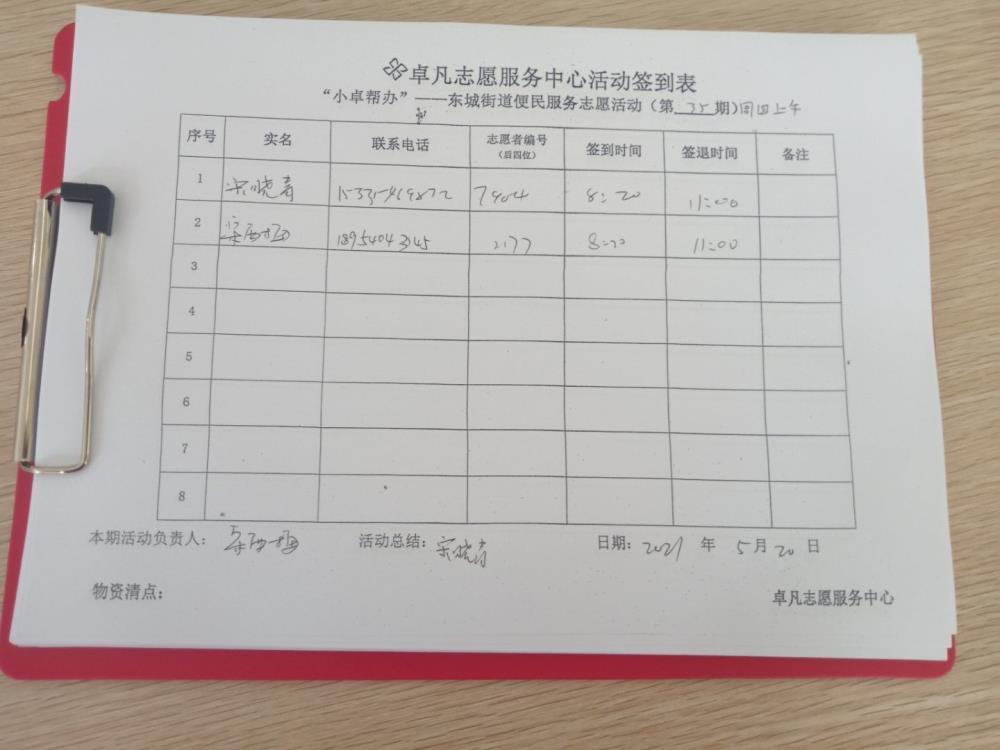 卓凡志愿服务中心活动签到表
“小卓帮办”——东城街道便民服务志愿活动（第 35 期）周四上午
序号 实名 联系电话 志愿者编号（后四位） 签到时间 签退时间 备注
1 宋晓青 7404 8:20 11:00
2 18954043145 2177 8:20 11:00
3
4
5
6
7
8
本期活动负责人： 活动总结：宋晓青 日期：2021 年 5 月 20 日
物资清点： 卓凡志愿服务中心